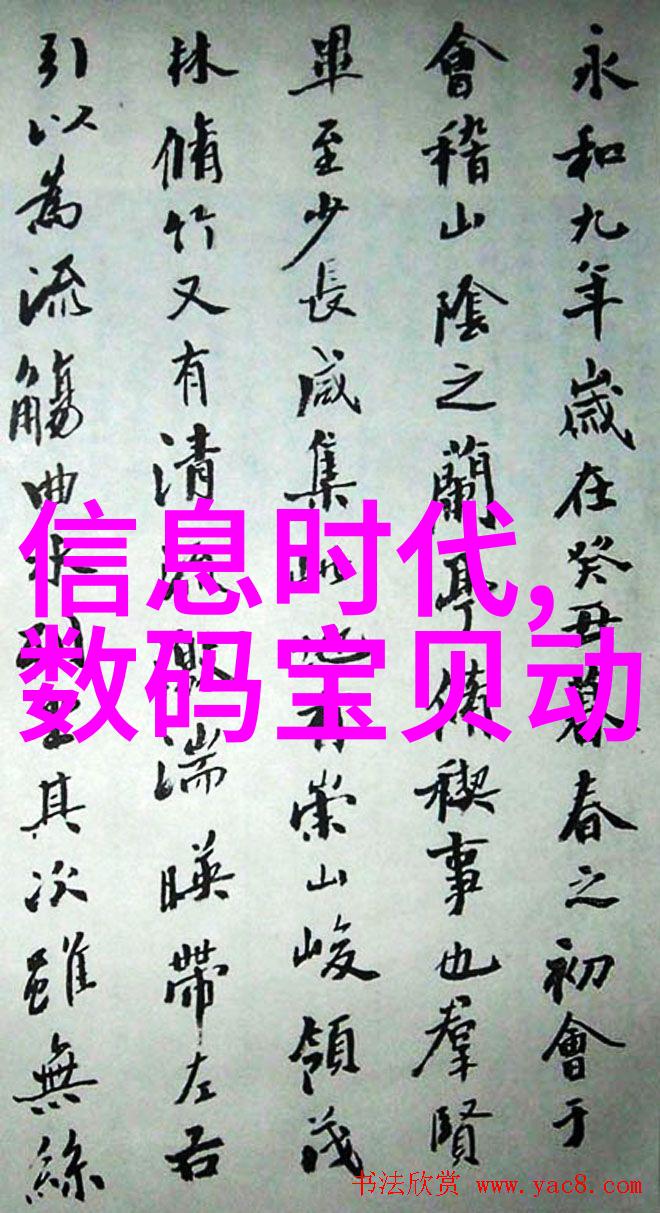 永和九年歲在癸丑暮春之初會于
會稽山陰之蘭亭脩稧事也羣賢
畢至少長咸集此地有崇山峻領茂
林脩竹又有清流激湍暎帶左右
引以為流觴曲水列坐其次雖無絲
信息时代,
数码宝贝动
书法欣赏 www.yac8.com